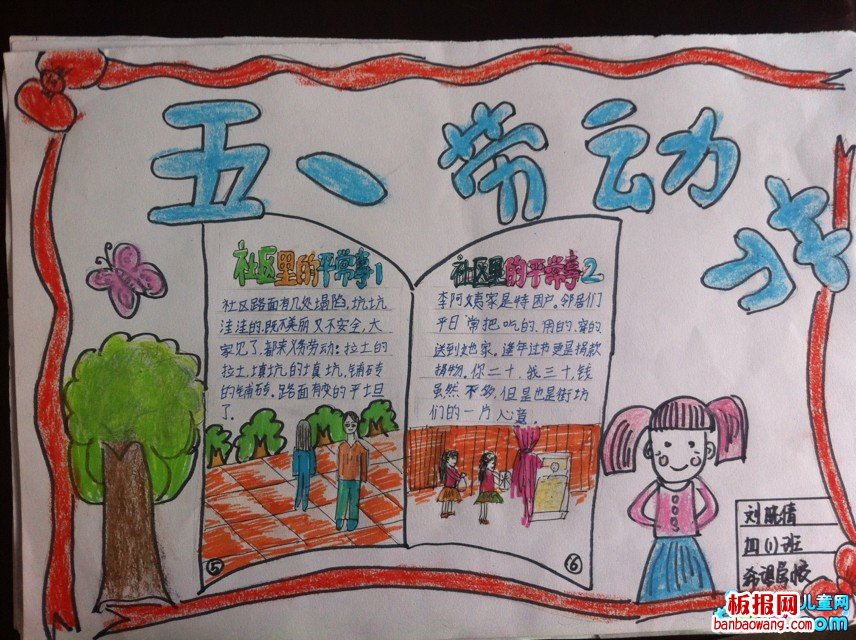 五一劳动节
社区里的平常事1
社区路面有几处塌陷，坑坑
洼洼的，既不美丽又不安全，大
家见了，都来义务劳动：拉土的
拉土，填坑的填坑，铺砖
的铺砖。路面有变的平坦
了。
⑤
社区里的平常事2
李阿姨家是特困户。邻居们
平日常把吃的、用的、穿的
送到她家。逢年过节更是捐款
捐物。你二十，我三十，钱
虽然不多，但是也是街坊
们的一片心意。
⑥
四(1)班
板报网
儿童网
banbaowang.com